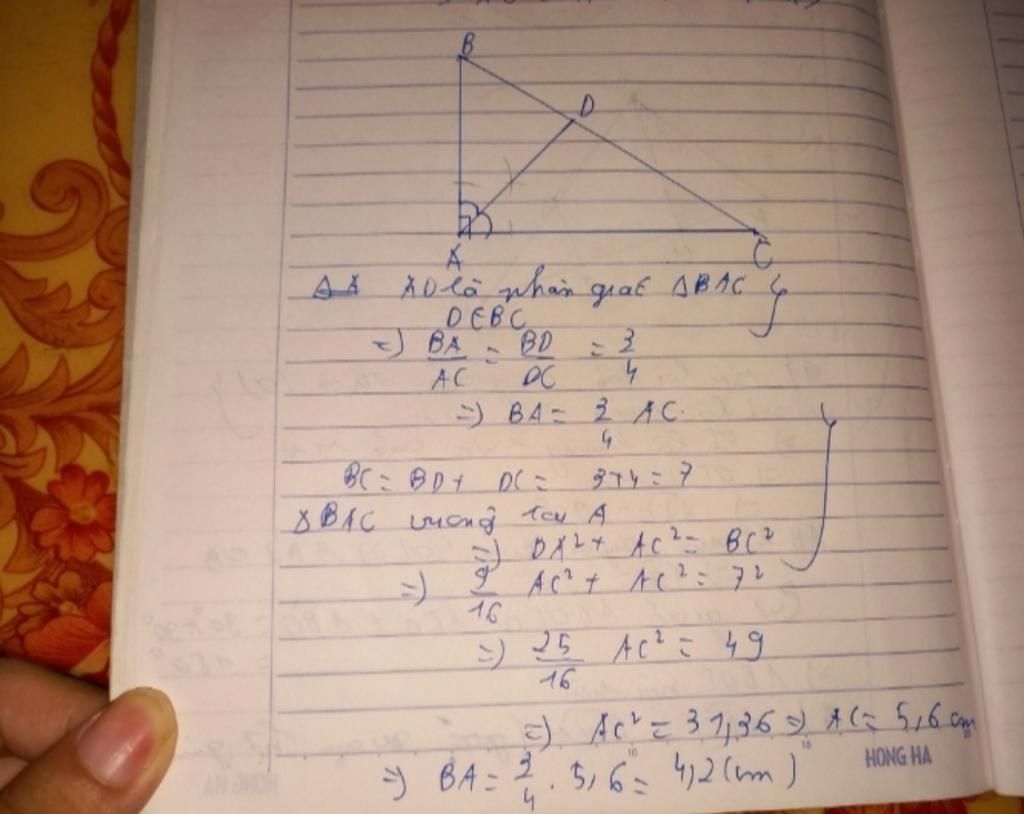 B
D
A
C
AD là phân giác ΔBAC
D∈BC
=) BA/AC = BD/DC = 3/4
=) BA = 3/4 AC.
BC = BD + DC = 3+4 = 7
ΔBAC vuông tại A
=) BA² + AC² = BC²
=) 9/16 AC² + AC² = 7²
=) 25/16 AC² = 49
=) AC² = 31,36 => AC = 5,6 cm
=) BA = 3/4 . 5,6 = 4,2 (cm)
HONG HA